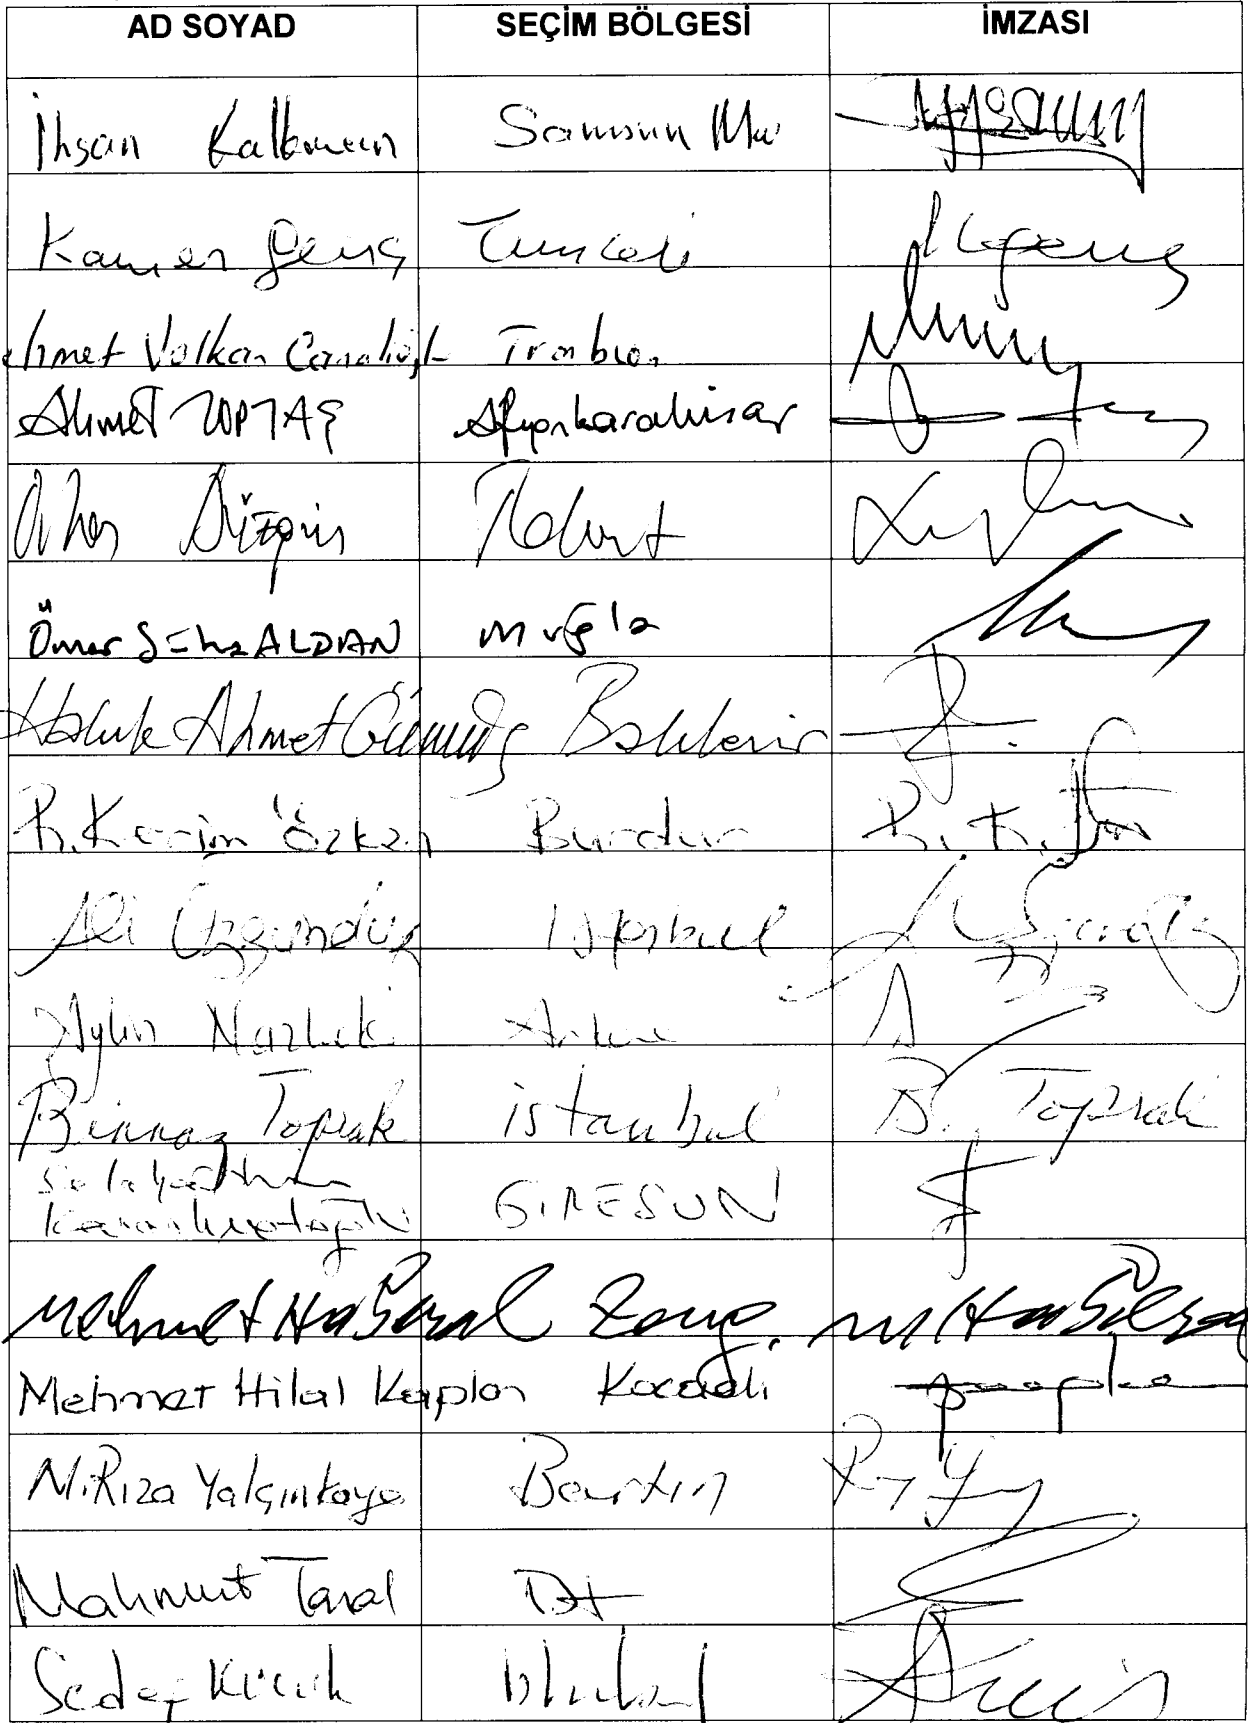 AD SOYAD SEÇİM BÖLGESİ İMZASI
İhsan Kalkavan Samsun Mv
Kamer Genç Tunceli KGenç
ehmet Volkan Canalioğlu Trabzon
Ahmet TOPTAŞ Afyonkarahisar
Orhan Düzgün Tokat
Ömer Süha ALDAN Muğla
Haluk Ahmet Gümüş Balıkesir
R. Kerim Özkan Burdur R. K.
Ali Özgündüz İstanbul
Aylin Nazlıaka Ankara A
Binnaz Toprak istanbul B. Toprak
Selahattin
Karaahmetoğlu GİRESUN
Mehmet Haberal Zong. M Haberal
Mehmet Hilal Kaplan Kocaeli
M. Rıza Yalçınkaya Bartın
Mahmut Tanal İst
Sedef Küçük İstanbul